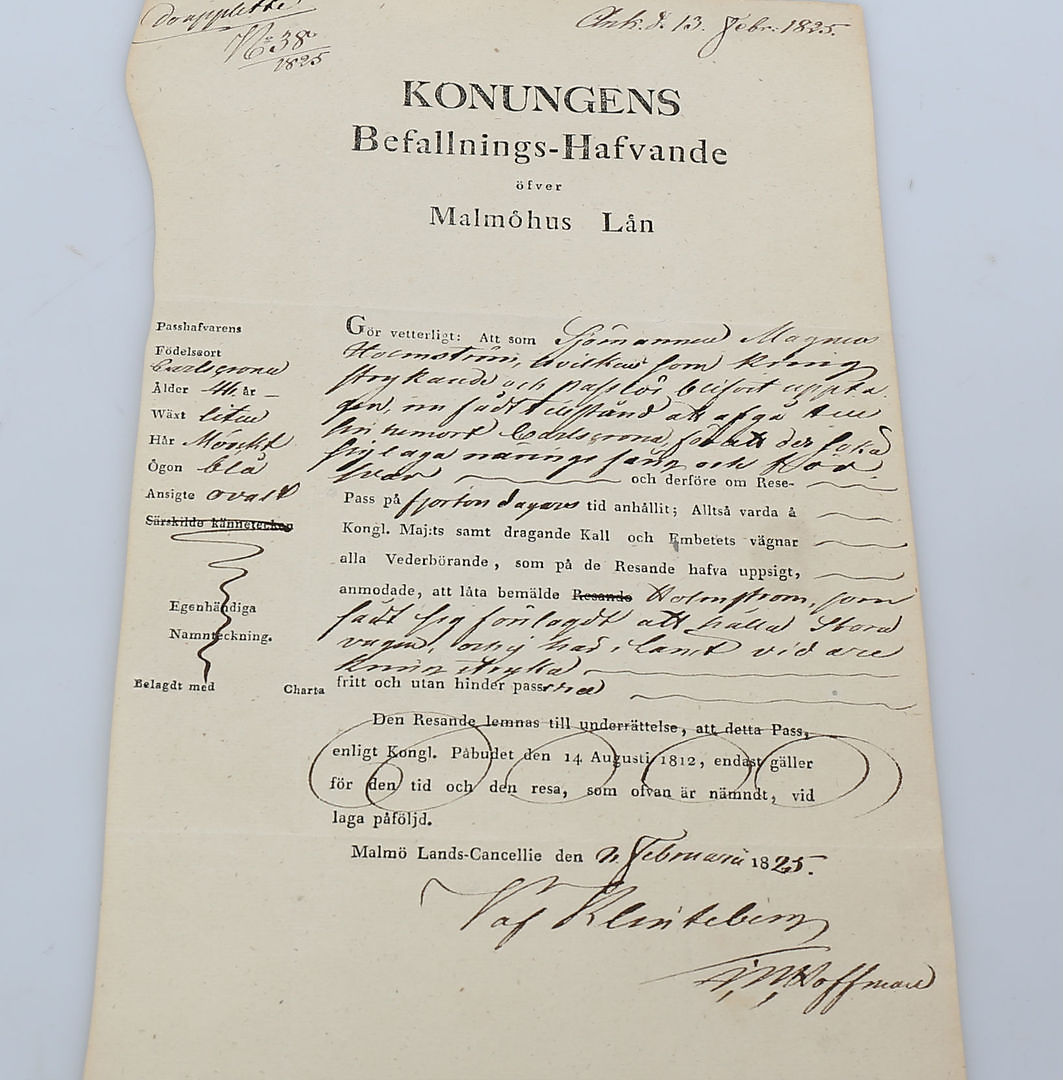 Doupplette
No 38
1825
Ank. d. 13. Febr. 1825.
KONUNGENS
Befallnings-Hafvande
öfver
Malmöhus Län
Passhafvarens
Födelseort
Carlscrona
Ålder 44. år
Wäxt liten
Hår Mörckt
Ögon blå
Ansigte ovalt
Särskilde kännetecken
Egenhändiga
Namnteckning.
Belagdt med Charta
Gör vetterligt: Att som Sjömannen Magnus
Holmström, hvilken som kring
strykande och passlös blifvit uppta
gen, nu fådt tillstånd att afgå till
sin hemort Carlscrona, för att der söka
sig laga närings fång och för
svar och derföre om Rese-
Pass på fjorton dagars tid anhållit; Alltså varda å
Kongl. Maj:ts samt dragande Kall och Embetets vägnar
alla Vederbörande, som på de Resande hafva uppsigt,
anmodade, att låta bemälde Resande Holmström, som
fådt sig förelagdt att hålla Stora
vägen, och ej här i Länet vidare
kring stryka
fritt och utan hinder passera
Den Resande lemnas till underrättelse, att detta Pass,
enligt Kongl. Påbudet den 14 Augusti 1812, endast gäller
för den tid och den resa, som ofvan är nämndt, vid
laga påföljd.
Malmö Lands-Cancellie den Februarii 1825.
af Klinteberg
Hoffman